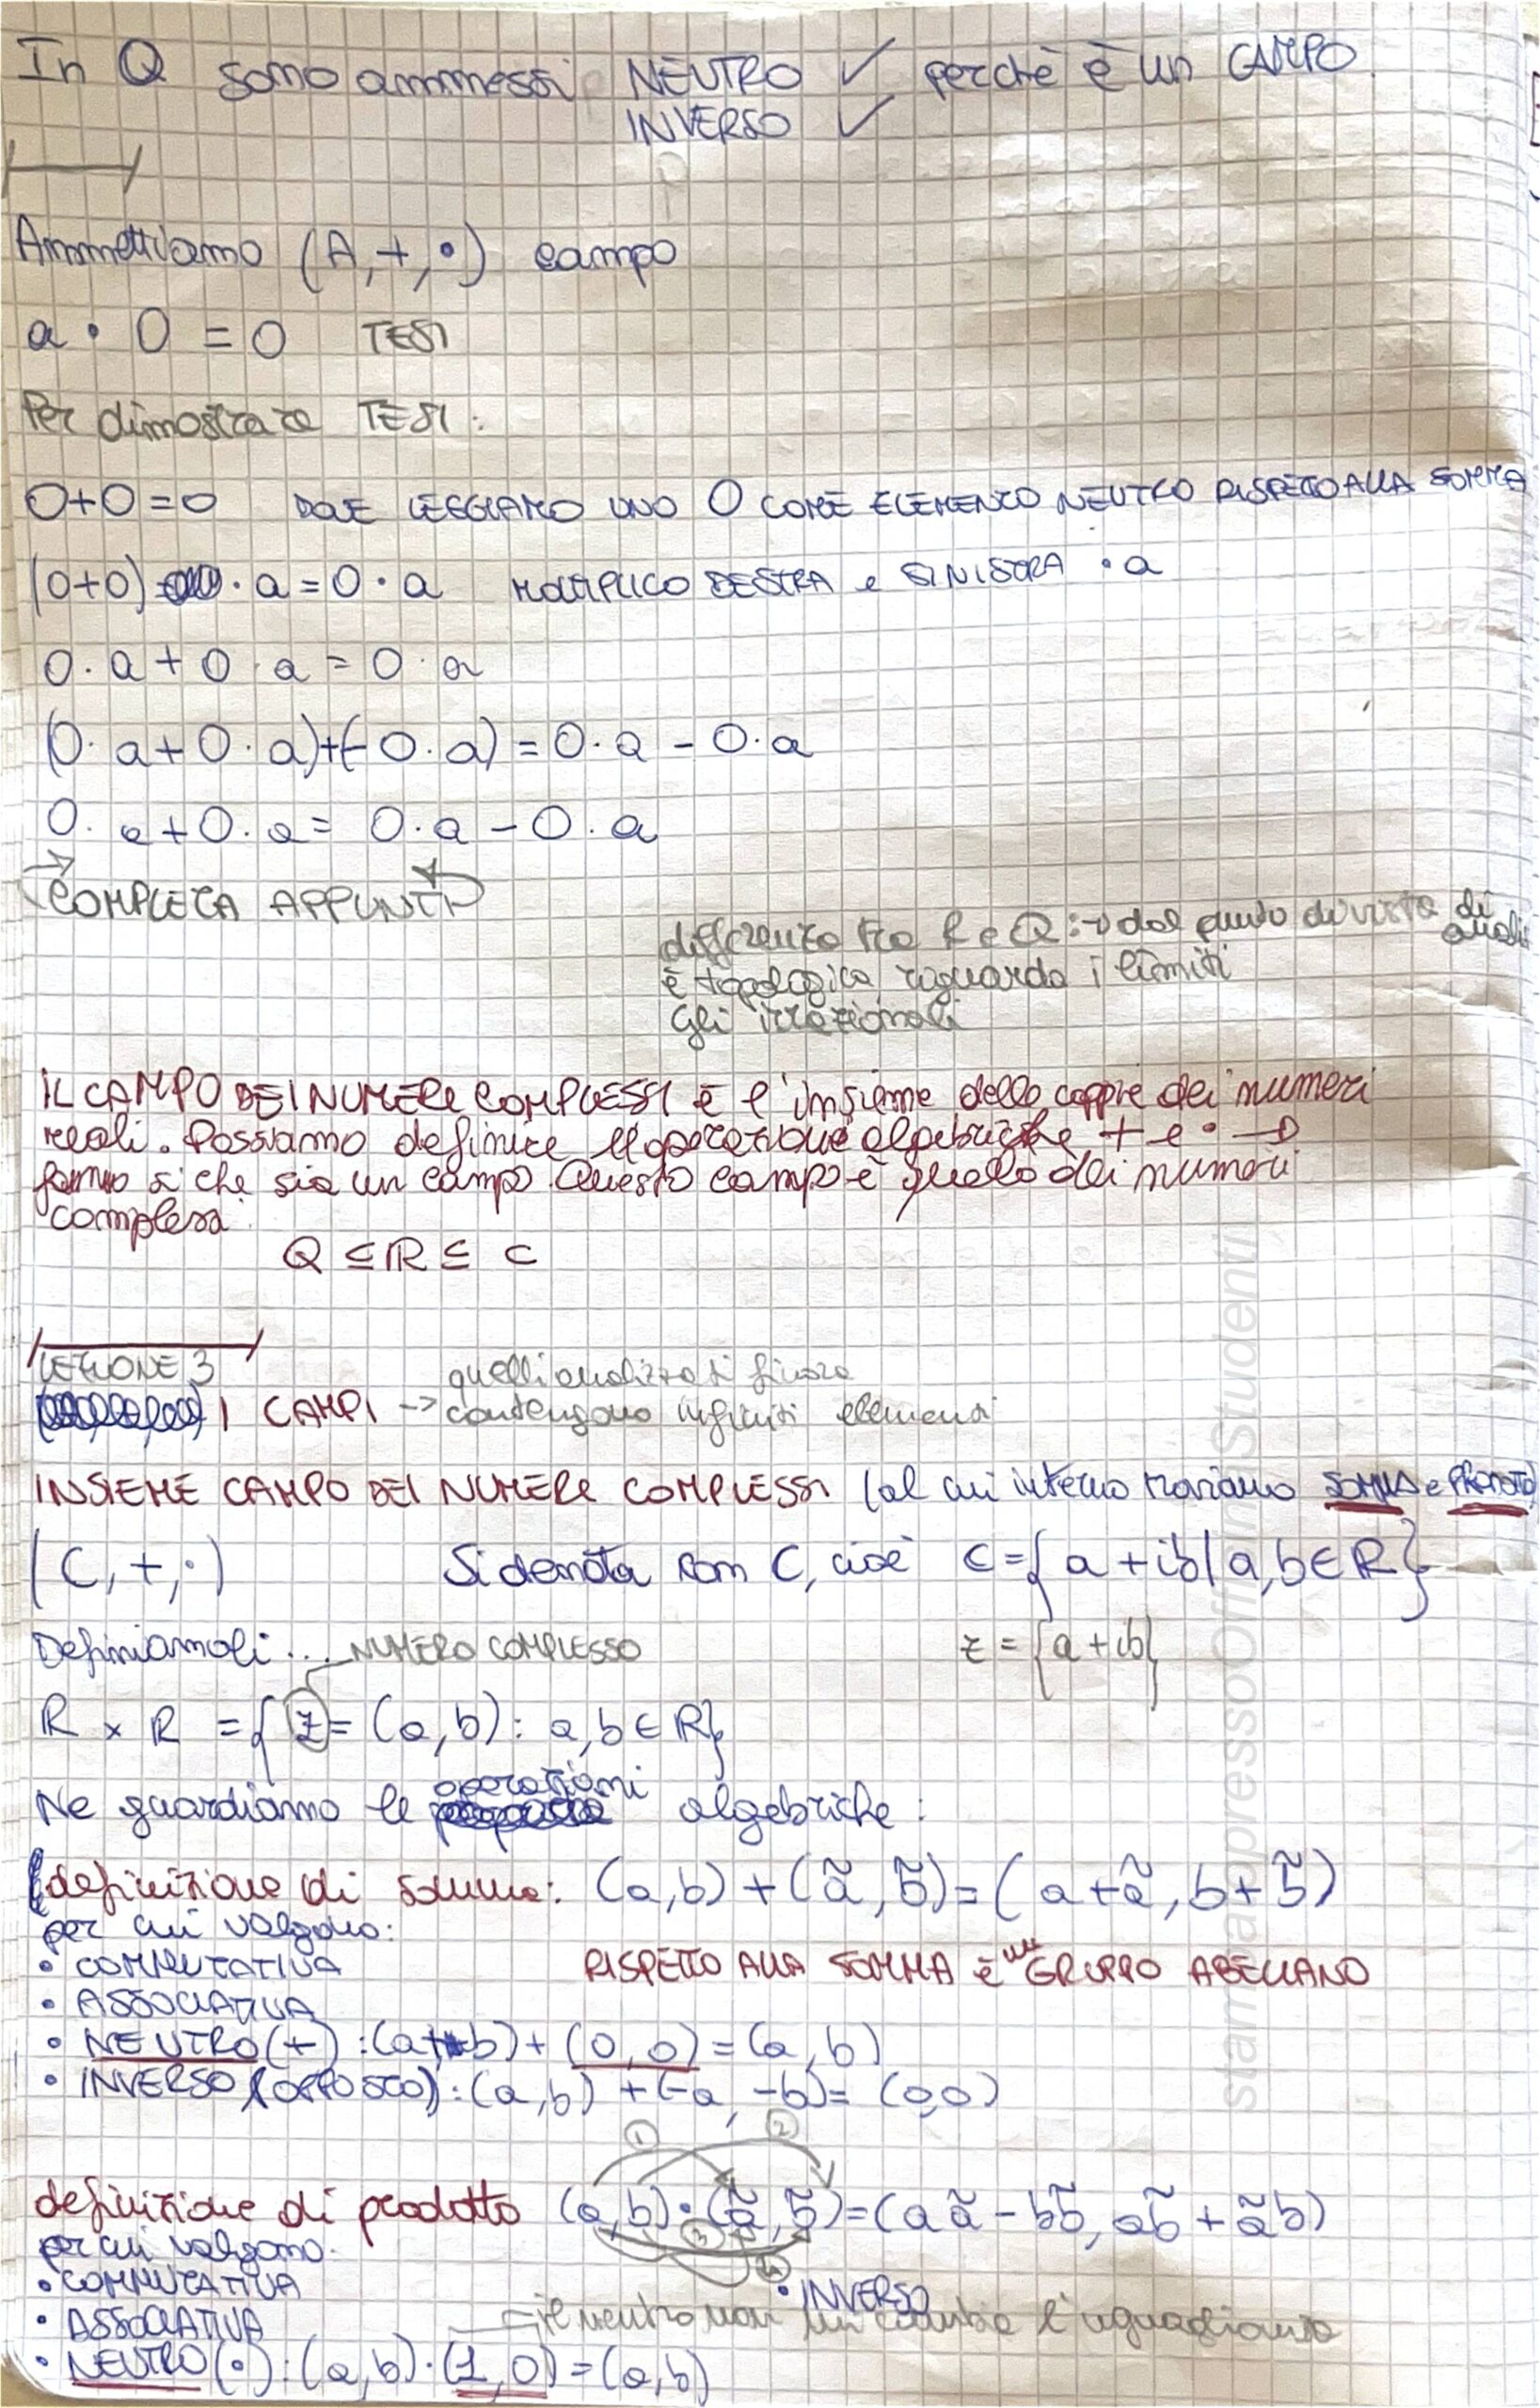 In Q sono ammessi NEUTRO ✓ perchè è un CAMPO
INVERSO ✓
Ammettiamo (A,+,•) campo
a • 0 = 0 TESI
Per dimostrare TESI:
0+0=0 DOVE LEGGIAMO UNO 0 COME ELEMENTO NEUTRO RISPETTO ALLA SOMMA
(0+0) · a = 0 · a MOLTIPLICO DESTRA e SINISTRA · a
0 · a + 0 · a = 0 · a
(0 · a + 0 · a)+(-0 · a) = 0 · a - 0 · a
0 · a + 0 · a = 0 · a - 0 · a
COMPLETA APPUNTI
differenza tra R e Q: → dal punto di vista di analisi
è topologica riguarda i limiti
gli irrazionali
IL CAMPO DEI NUMERI COMPLESSI è l'insieme delle coppie dei numeri
reali. Possiamo definire operazioni algebriche + e • →
fanno sì che sia un campo. Questo campo è quello dei numeri
complessi
Q ⊆ R ⊆ C
LEZIONE 3
quelli analizzati finora
I CAMPI → contengono infiniti elementi
INSIEME CAMPO DEI NUMERI COMPLESSI (al cui interno troviamo SOMMA e PRODOTTO)
(C,+,·) Si denota con C, cioè C={a+ib|a,b∈R}
Definiamoli... NUMERO COMPLESSO z = {a+ib}
R × R = {z = (a,b): a,b ∈ R}
Ne guardiamo le operazioni algebriche:
definizione di somma: (a,b) + (ã,b̃) = (a+ã, b+b̃)
per cui valgono:
• COMMUTATIVA
RISPETTO ALLA SOMMA è un GRUPPO ABELIANO
• ASSOCIATIVA
• NEUTRO(+): (a b) + (0,0) = (a,b)
• INVERSO (OPPOSTO): (a,b) + (-a,-b) = (0,0)
① ②
definizione di prodotto (a,b)·(ã,b̃)=(aã - bb̃, ab̃ + ãb)
③ ④
per cui valgono:
• COMMUTATIVA
• INVERSO
• ASSOCIATIVA
il neutro non mi cambia l'uguaglianza
• NEUTRO(•): (a,b)·(1,0)=(a,b)